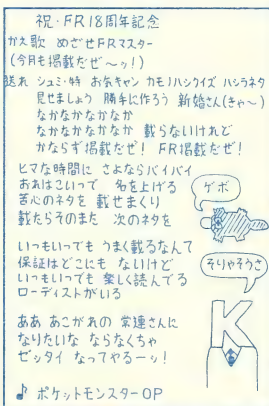 祝・FR18周年記念
かえ歌 めざせFRマスター
(今月も掲載だぜ〜ッ!)
送れ シュミ・特 お気キャン カモノハシクイズ ハシラネタ
見せましょう 勝手に作ろう 新婚さん(きゃ〜)
なかなかなかなか
なかなかなかなか 載らないけれど
かならず掲載だぜ! FR掲載だぜ!
ヒマな時間に さよならバイバイ
おれはこいつで 名を上げる
苦心のネタを 載せまくり
載たらそのまた 次のネタを
ゲボ
いつもいつでも うまく載るなんて
保証はどこにも ないけど
いつもいつでも 楽しく読んでる
ローディストがいる
そりゃそうさ
ああ あこがれの 常連さんに
なりたいな ならなくちゃ
ゼッタイ なってやるーッ!
K
♪ ポケットモンスターOP